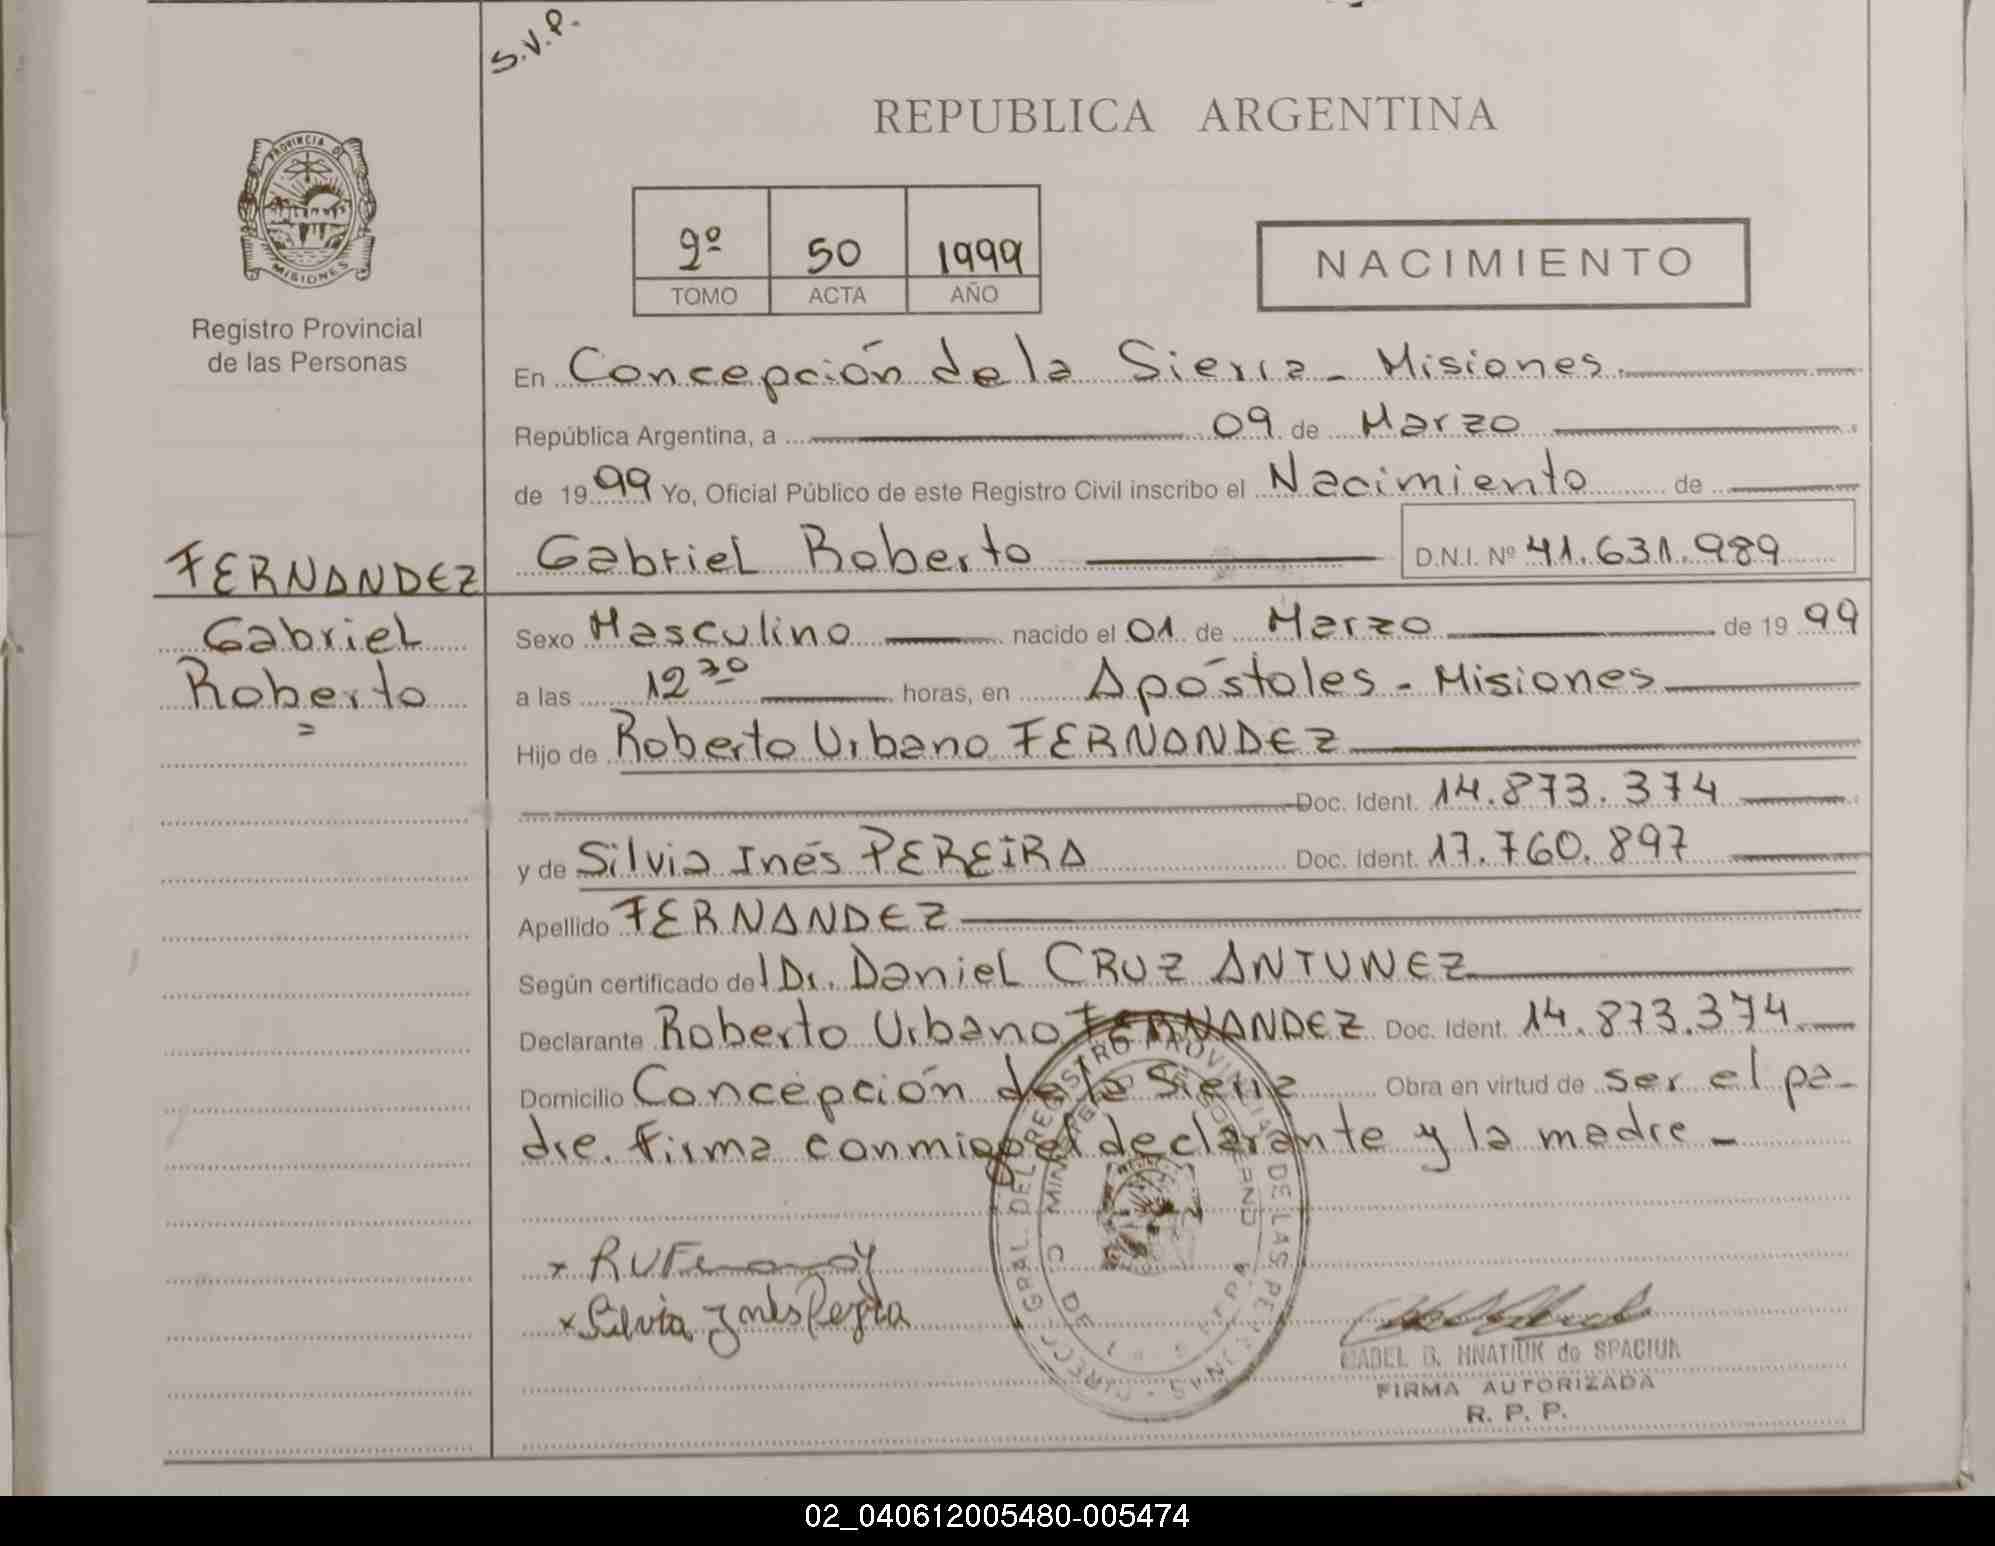 S.V.P.
REPUBLICA ARGENTINA
PROVINCIA DE
MISIONES
Registro Provincial
de las Personas
2º 50 1999
TOMO ACTA AÑO
NACIMIENTO
En Concepción de la Sierra - Misiones
República Argentina, a 09 de Marzo
de 1999 Yo, Oficial Público de este Registro Civil inscribo el Nacimiento de
Gabriel Roberto D.N.I. Nº 41.631.989
FERNANDEZ
Gabriel
Roberto
Sexo Masculino nacido el 01 de Marzo de 1999
a las 12 30 horas, en Apóstoles - Misiones
Hijo de Roberto Urbano FERNANDEZ
Doc. Ident. 14.873.374
y de Silvia Inés PEREIRA Doc. Ident. 17.760.897
Apellido FERNANDEZ
Según certificado del Dr. Daniel CRUZ ANTUNEZ
Declarante Roberto Urbano FERNANDEZ Doc. Ident. 14.873.374
Domicilio Concepción de la Sierra Obra en virtud de ser el pa-
dre. Firma conmigo el declarante y la madre -
x
x Silvia Inés
HNATIUK de SPACIUK
FIRMA AUTORIZADA
R. P. P.
02_040612005480-005474